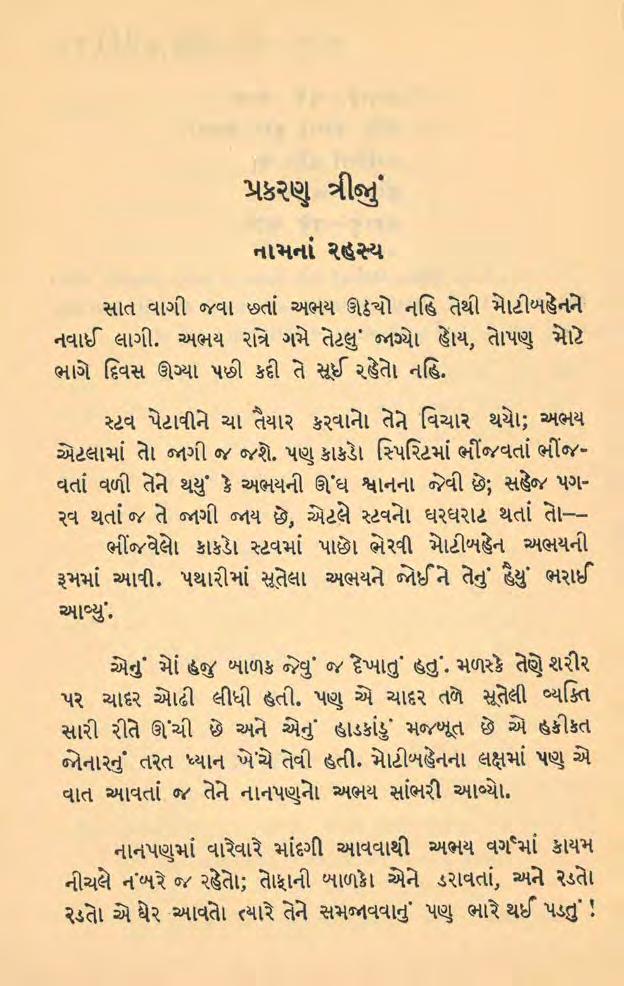 પ્રકરણ ત્રીજું
નામનાં રહસ્ય
સાત વાગી જવા છતાં અભય ઊઠ્યો નહિ તેથી મોટીબહેનને
નવાઈ લાગી. અભય રાત્રે ગમે તેટલું જાગ્યો હોય, તોપણ મોટે
ભાગે દિવસ ઊગ્યા પછી કદી તે સૂઈ રહેતો નહિ.
સ્ટવ પેટાવીને ચા તૈયાર કરવાનો તેને વિચાર થયો; અભય
એટલામાં તો જાગી જ જશે. પણ કાકડો સ્પિરિટમાં ભીંજવતાં ભીંજ-
વતાં વળી તેને થયું કે અભયની ઊંઘ શ્વાનના જેવી છે; સહેજ પગ-
રવ થતાં જ તે જાગી જાય છે, એટલે સ્ટવનો ઘરઘરાટ થતાં તો––
ભીંજવેલો કાકડો સ્ટવમાં પાછો ભેરવી મોટીબહેન અભયની
રૂમમાં આવી. પથારીમાં સૂતેલા અભયને જોઈને તેનું હૈયું ભરાઈ
આવ્યું.
એનું મોં હજુ બાળક જેવું જ દેખાતું હતું. મળસ્કે તેણે શરીર
પર ચાદર ઓઢી લીધી હતી. પણ એ ચાદર તળે સૂતેલી વ્યક્તિ
સારી રીતે ઊંચી છે અને એનું હાડકાંડું મજબૂત છે એ હકીકત
જોનારનું તરત ધ્યાન ખેંચે તેવી હતી. મોટીબહેનના લક્ષમાં પણ એ
વાત આવતાં જ તેને નાનપણનો અભય સાંભરી આવ્યો.
નાનપણમાં વારેવારે માંદગી આવવાથી અભય વર્ગમાં કાયમ
નીચલે નંબરે જ રહેતો; તોફાની બાળકો એને ડરાવતાં, અને રડતો
રડતો એ ઘેર આવતો ત્યારે તેને સમજાવવાનું પણ ભારે થઈ પડતું !